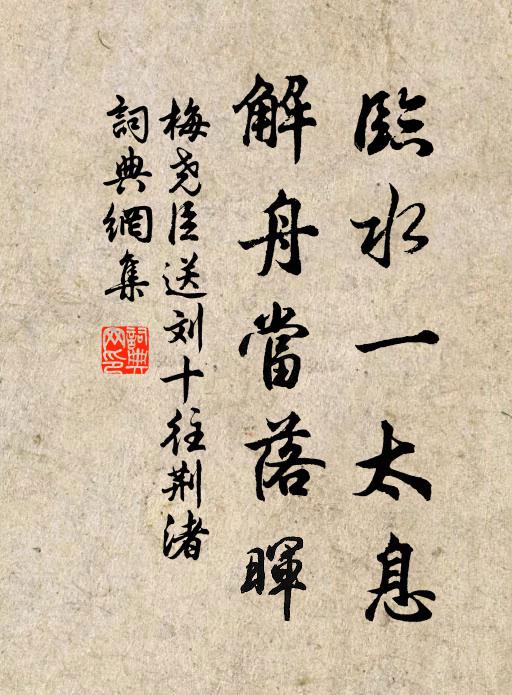 臨水一太息
解舟當落暉
梅尧臣送刘十往荆渚
詞典網集
詞典网印